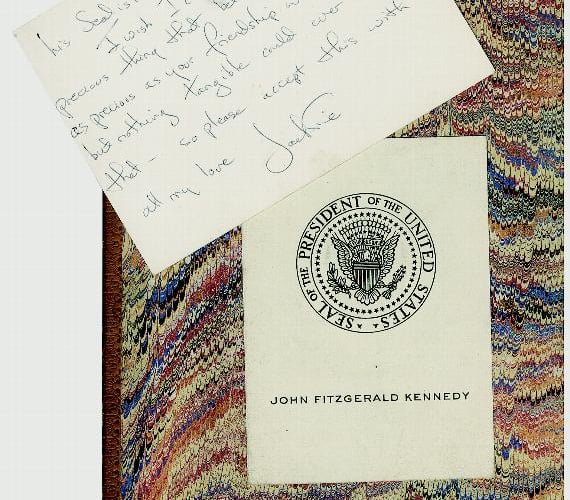 his Seal is
I wish I
precious thing that
as precious as your friendship
but nothing tangible could ever
that - so please accept this with
all my love
Jackie
SEAL OF THE PRESIDENT OF THE UNITED STATES
JOHN FITZGERALD KENNEDY